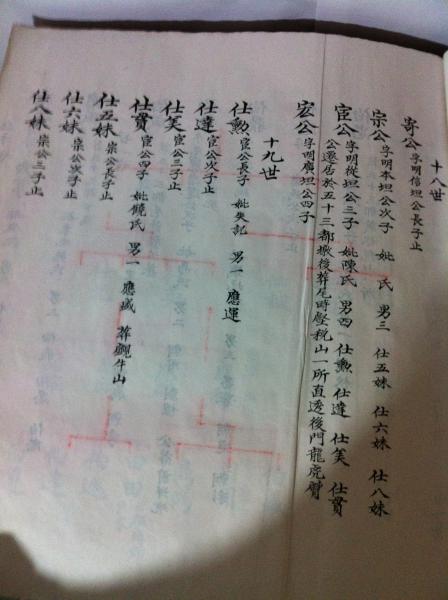 十八世
寄公 字明信坦公長子止
宗公 字明本坦公次子 妣 氏 男三 仕五妹 仕六妹 仕八妹
宦公 字明從坦公三子 妣陳氏 男四 仕勲 仕達 仕笑 仕賢
公遷居於五十三都 後葬尾時 稅山一所直透後門龍虎臂
宏公 字明廣坦公四子
十九世
仕勲 宦公長子 妣失記 男一 應運
仕達 宦公次子止
仕笑 宦公三子止
仕賢 宦公四子 妣饒氏 男一 應盛 葬 牛山
仕五妹 宗公長子止
仕六妹 宗公次子止
仕八妹 宗公三子止